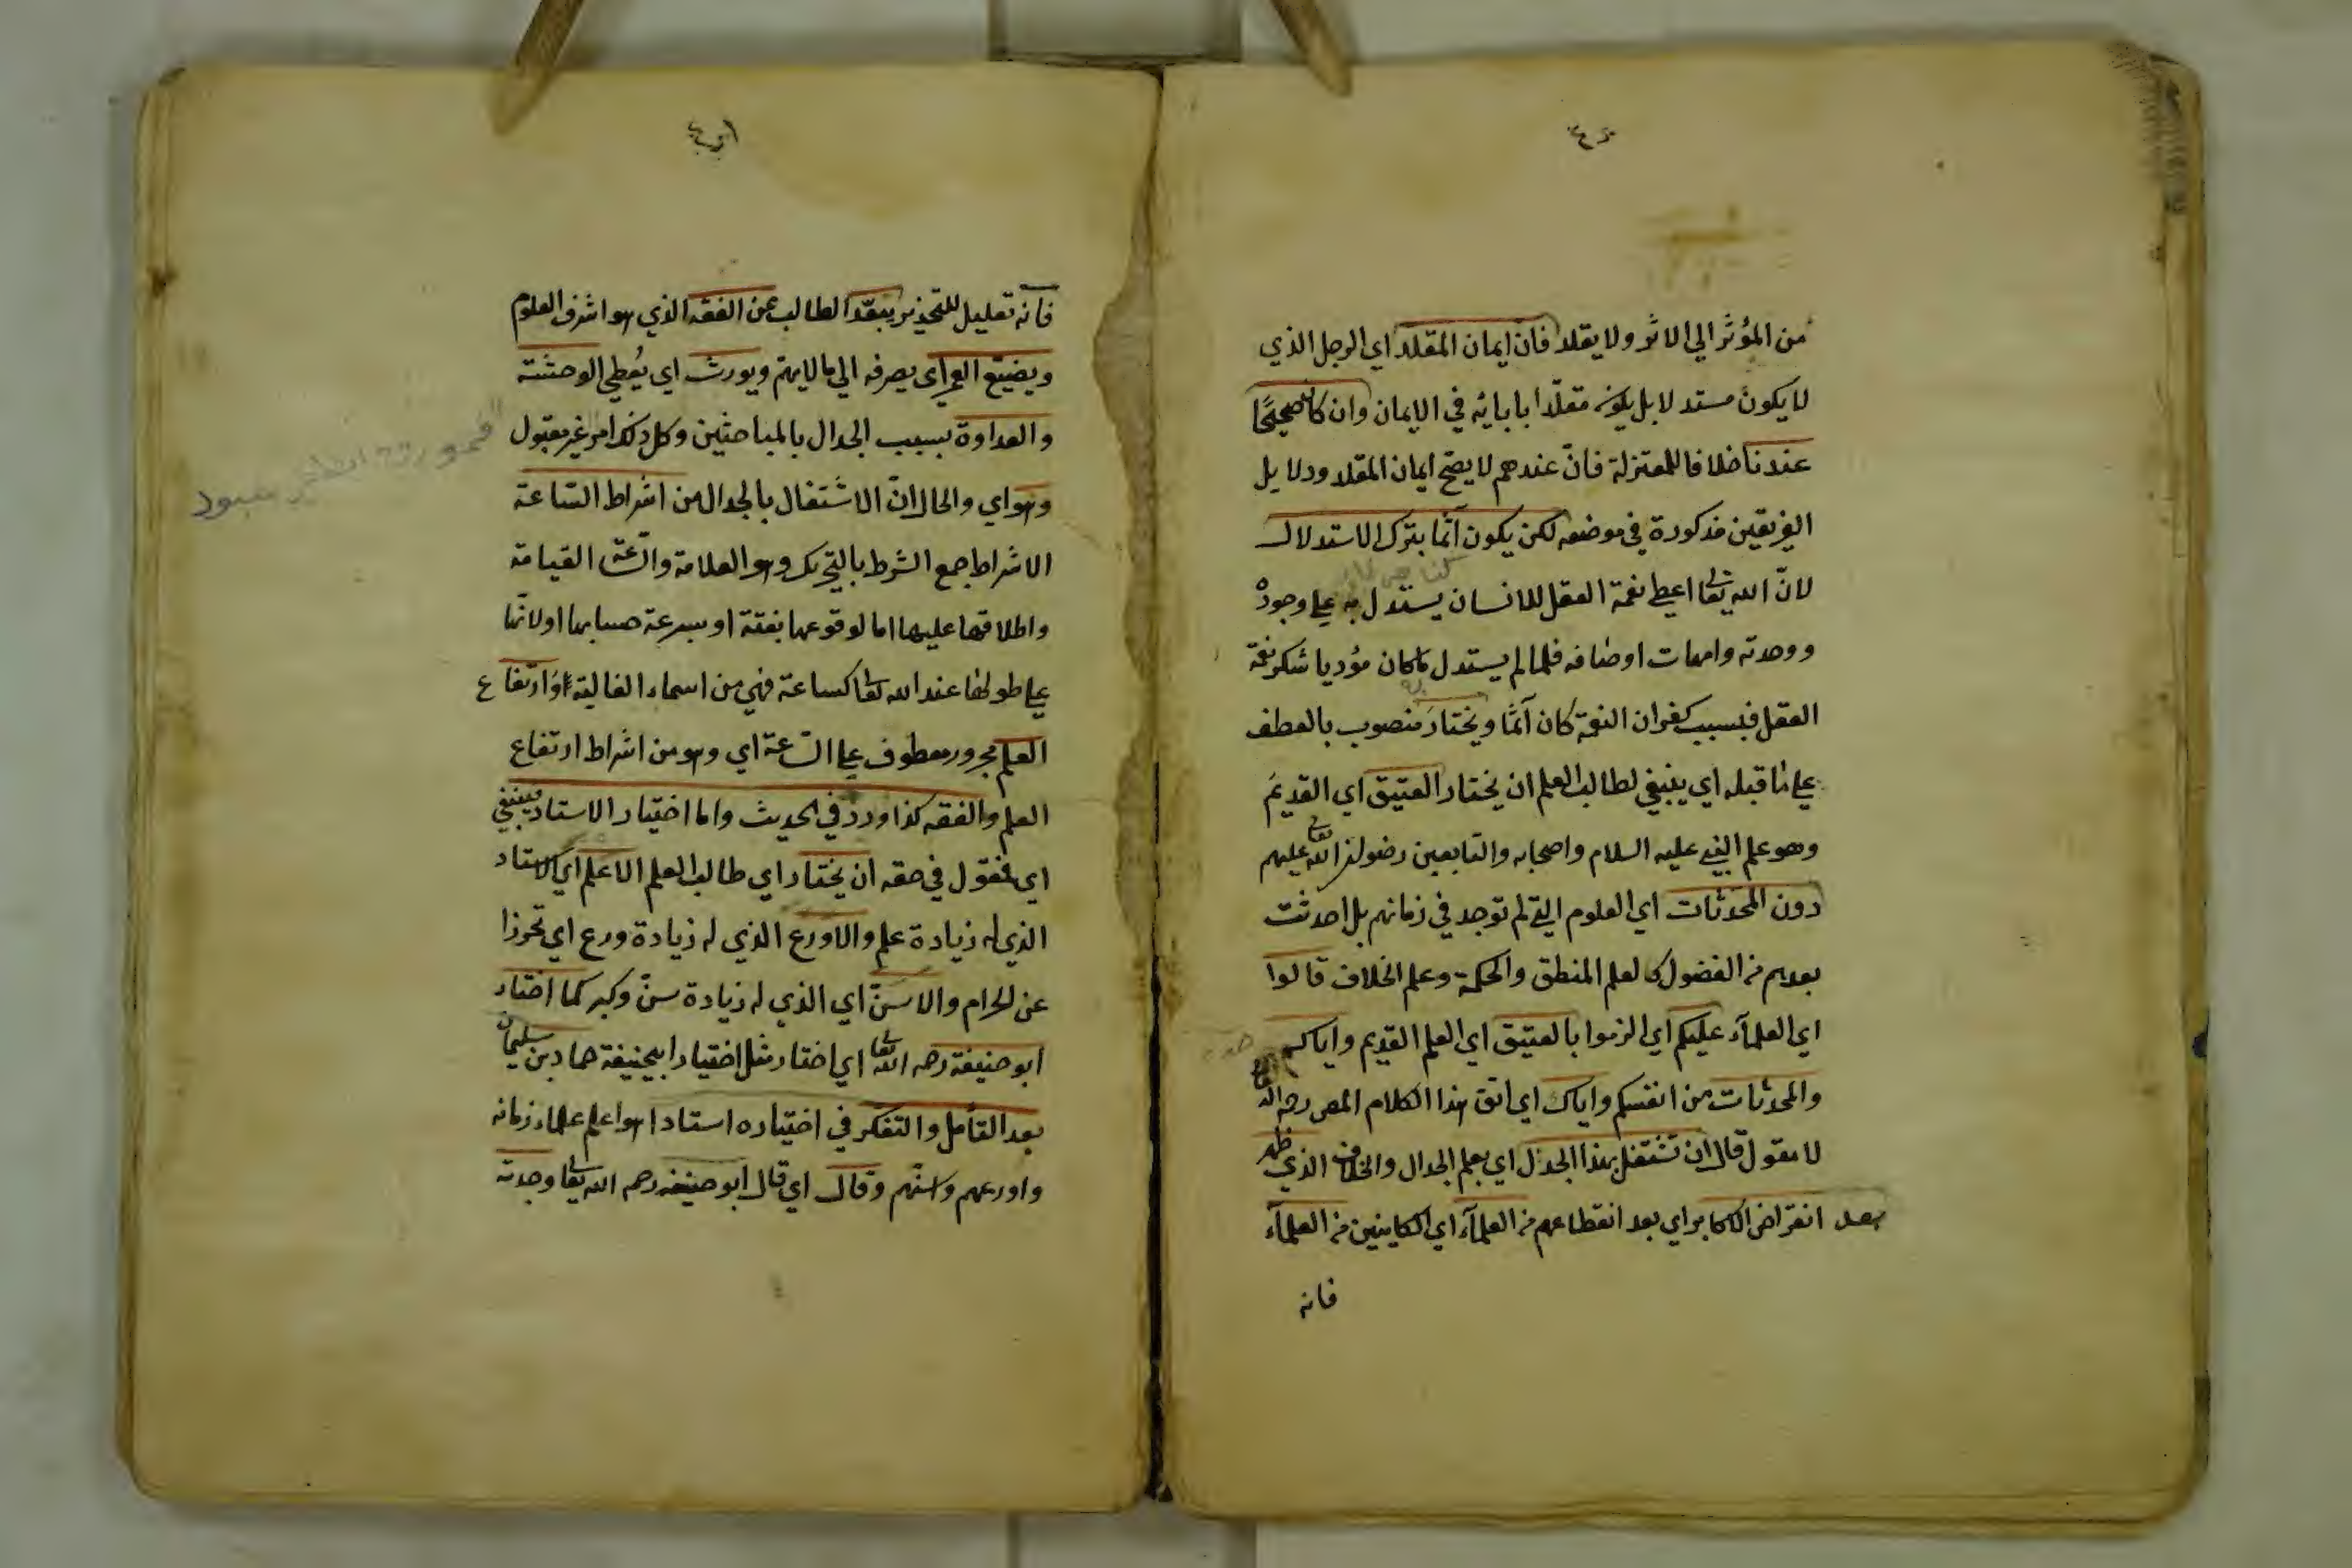 من المؤثر الي الاثر ولا يقلد فان ايمان المقلد اي الرجل الذي
لا يكون مستدلا بل يكون مقلدا بابائه في الايمان وان كان صحيحًا
عندنا خلافا للمعتزلة فانّ عندهم لا يصح ايمان المقلد ودلايل
الفريقين مذكورة في موضعه لكن يكون آثما بترك الاستدلال
لانّ الله تعالى اعطى نعمة العقل للانسان يستدل به علي وجوده
ووحدته وامهات اوصافه فلما لم يستدل ما كان مؤديا شكر نعمة
العقل فبسبب كفران النعمة كان آثما ويختارَ منصوب بالعطف
علي ما قبله اي ينبغي لطالب العلم ان يختار العتيق اي القديمَ
وهو علم النبي عليه السلام واصحابه والتابعين رضوان الله تعالى عليهم
دون المحدثات اي العلوم التي لم توجد في زمانهم بل احدثت
بعدهم من الفضول كالعلم المنطق والحكمة وعلم الخلاف قالوا
اي العلمآء عليكم اي الزموا بالعتيق اي العلم القديم واياكم
والمحدثات من انفسكم واياك اي اتق هذا الكلام المص رحمه الله
لا مقول قال ان تشتغل بهذا الجدل اي بعلم الجدال والخلاف الذي ظهر
بعد انقراض الاكابر اي بعد انقطاعهم من العلمآء اي الكاينين من العلمآء
فانه
فانه تعليل للتحذير يبعّد الطالب عن الفقه الذي هو اشرف العلوم
ويضيّع العمر اي يصرفه الي ما لا يهم ويورث اي يُعطي الوحشة
والعداوة بسبب الجدال بالمباحثين وكل ذلك امر غير مقبول
وهو اي والحال انّ الاشتغال بالجدال من اشراط الساعة
الاشراط جمع الشرط بالتحريك وهو العلامة والساعة القيامة
واطلاقها عليها اما لوقوعها بغتة او سرعة حسابها او لانّها
علي طولها عند الله تعالى كساعة فهي من اسماء الغالبة وارتفاع
العلم مجرور معطوف علي السّاعة اي وهو من اشراط ارتفاع
العلم والفقه كذا ورد في الحديث واما اختيار الاستاد فينبغي
اي فنقول في حقه ان يختار اي طالب العلم الاعلم اي الاستاد
الذي له زيادة علم والاورع الذي له زيادة ورع اي تحرزا
عن الحرام والاسنّ اي الذي له زيادة سنّ وكبر كما اختار
ابو حنيفة رحمه الله تعالى اي اختار مثل اختيار ابي حنيفة حماد بن سليمان
بعد التأمل والتفكر في اختياره استادا هو اعلم علماء زمانه
واورعهم واسنّهم وقال اي قال ابو حنيفة رحمه الله تعالى وجدته